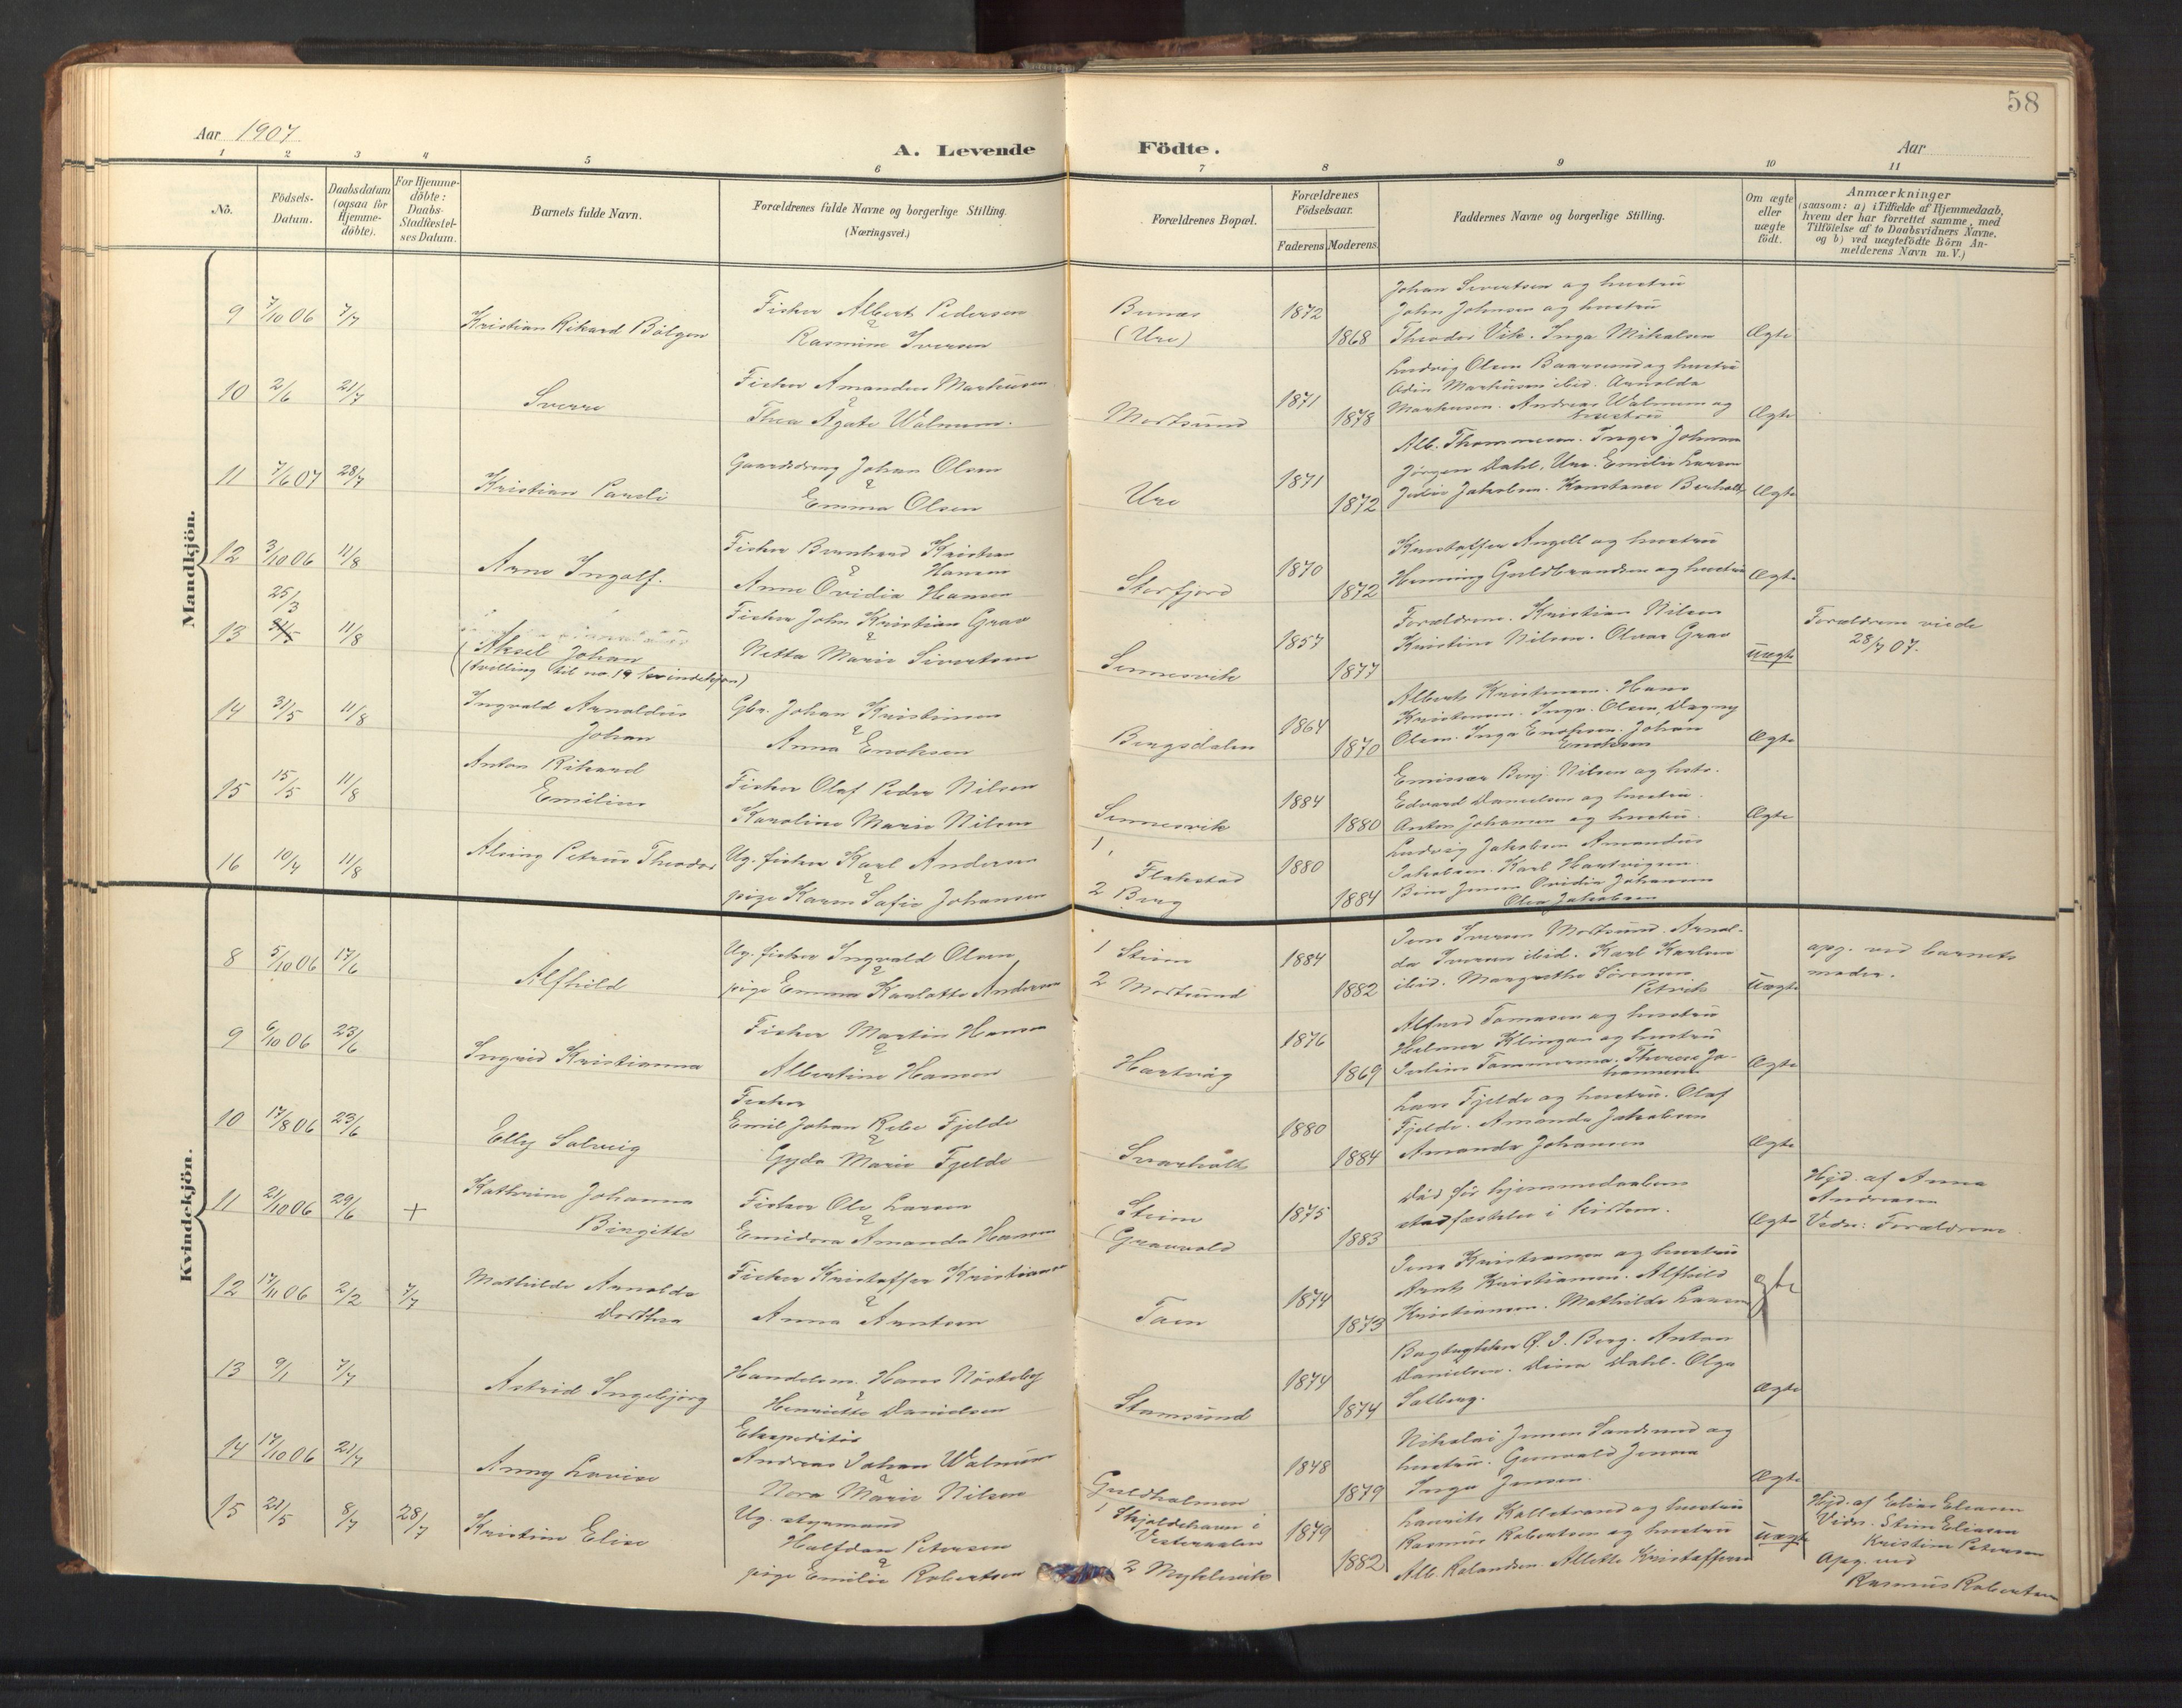 58
Aar 1907
A. Levende Födte.
Aar
1 2 3 4 5 6 7 8 9 10 11
No.
Födsels-Datum.
Daabsdatum (ogsaa for Hjemme-döbte).
For Hjemme-döbte: Daabs-Stadfæstel-ses Datum.
Barnets fulde Navn.
Forældrenes fulde Navne og borgerlige Stilling.
(Næringsvei.)
Forældrenes Bopæl.
Forældrenes Födselsaar.
Faderens Moderens
Faddernes Navne og borgerlige Stilling.
Om ægte eller uægte födt.
Anmærkninger
(saasom: a) i Tilfælde af Hjemmedaab,
hvem der har forrettet samme, med
Tilföielse af to Daabsvidners Navne.
og b) ved uægtefödte Börn An-
melderens Navn m.V.)
Mandkjön.
9 7/10 06 7/7
Kristian Rikard Bölgen
Fisker Albert Pedersen
&
Rasmine Iversen
Bunæs
(Ure)
1872
1868
Johan Sivertsen og hustru
John Johnsen og hustru
Theodor Vik. Inga Mikalsen
Ægte
10 2/6 21/7
Sverre
Fisker Amandus Markussen
&
Thea Agate Walnum.
Mortsund
1871
1878
Ludvig Olsen Baarsund og hustru
Odin Markusen ibid. Arnolda
Markusen. Andreas Walnum og
hustru
Ægte
11 7/6 07 28/7
Kristian Pareli
Gaardsdreng Johan Olsen
&
Emma Olsen
Ure
1871
1872
Alb. Thommesen. Inger Johnsen
Jörgen Dahl, Ure. Emilie Larsen
Julie Jakobsen. Konstance
Ægte
12 3/10 06 11/8
Arne Ingolf.
Fisker Bernhard Kristian
Hansen
&
Anne Ovidia Hansen
Storfjord
1870
1872
Kristoffer Angell og hustru
Henning Guldbrandsen og hustru
Ægte
13 25/3 11/8
Aksel Johan
(tvilling til no. 19 kvindekjøn)
Fisker John Kristian Grav
&
Netta Marie Sivertsen
Sennesvik
1857
1877
Forældrene. Kristian Nilsen
Kristine Nilsen. Olvar Grav
Uægte
Forældrene viede
28/7 07.
14 31/5 11/8
Ingvald Arnoldus
Johan
Gbr. Johan Kristensen
&
Anna Enoksen
Bergsdalen
1864
1870
Albert Kristensen. Hans
Kristensen. Inga Olsen, Dagny
Olsen. Inga Enoksen. Johan
Enoksen
Ægte
15 15/5 11/8
Anton Rikard
Emilius
Fisker Olaf Peder Nilsen
Karoline Marie Nilsen
Sennesvik
1884
1880
Emissær Benj. Nilsen og hstr.
Edvard Danielsen og hustru.
Anton Johansen og hustru.
Ægte
16 10/4 11/8
Alsing Petrus Theodor
Ug. fisker Karl Andersen
&
pige Karen Sofie Johansen
1 Flakstad
2 Berg
1880
1884
Ludvig Jakobsen Amandus
Jakobsen. Karl Hartvigsen.
Jensen Ovidia Johansen
Olea Jakobsen
Kvindekjön.
8 5/10 06 17/6
Alfhild
Ug. fisker Ingvald Olsen
&
pige Emma Karlotte Andersen
1 Steine
2 Mortsund
1884
1882
Jens Iversen Mortsund. Arnol-
da Iversen ibid. Karl Karlsen
ibid. Margrethe Sörensen
Petvik
Uægte
opg. ved barnets
moder.
9 6/10 06 23/6
Ingrid Kristianna
Fisker Martin Hansen
&
Albertine Hansen
Hartvåg
1876
1869
Alfred Tomasen og hustru
Helmer Klingan og hustru
Julius Tommerma. Therese Jo-
hannesen
Ægte
10 17/8 06 23/6
Elly Solveig
Fisker
Emil Johan Rebe Fjelde
&
Gyda Marie Fjelde
Svarholt
1880
1884
Lars Fjelde og hustru. Olaf
Fjelde. Amanda Jakobsen
Amanda Johansen
Ægte
11 21/10 06 29/6 +
Kathrine Johanna
Birgitte
Fisker Ole Larsen
&
Emidora Amanda Hansen
Steine
(Grauvold
1875
1883
Död för hjemmedaabens
stadfæstelse i kirken.
Ægte
Hjd. af Anna
Andreasen
Vidn: Forældrene
12 17/11 06 2/2 7/7
Mathilde Arnolda
Dorthea
Fisker Kristoffer Kristiansen
&
Anna Arntsen
Taen
1874
1873
Jens Kristiansen og hustru
Arnt Kristiansen. Alfhild
Kristiansen. Mathilde Larsen
gte
13 9/1 7/7
Astrid Ingebjörg
Handelsm. Hans Nösteby
&
Henriette Danielsen
Stamsund
1874
1874
Ö. J. Berg. Anton
Danielsen. Dina Dahl. Olga
Solberg.
Ægte
14 17/10 06 21/7
Anny Lovise
Ekspeditör
Andreas Johan Walnum
&
Nora Marie Nilsen
Guldholmen
1848
1879
Nikolai Jensen Sandsund og
hustru. Gunvald Jensen
Inga Jensen.
Ægte
15 21/5 8/7 28/7
Kristine Elise
Ug. styrmand
Halfdan Petersen
&
pige Emilie Robertsen
1 Skjoldehavn i
Vesteraalen
2 Myklevik
1879
1882
Laurits Kallestrand og hustru
Rasmus Robertsen og hustru
Alb. Rolandsen. Allette Kristoffersen
Uægte
Hjd. af Elias Eliasen
Vidn. Stine Eliasen
Kristine Petersen
Opg. ved
Rasmus Robertsen